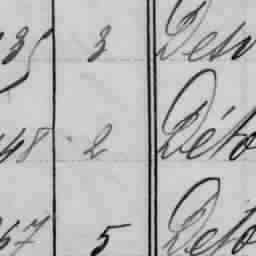 35 3 Desv
48 2 Déto
67 5 Déto